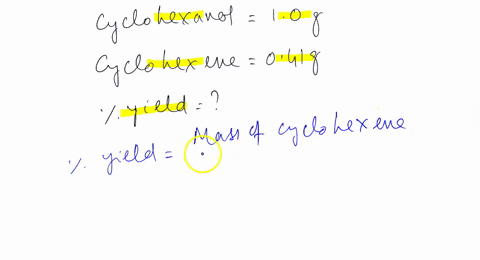 Cyclohexanol = 1.0 g
Cyclohexene = 0.41g
% yield = ?
Mass of cyclohexene
% yield =